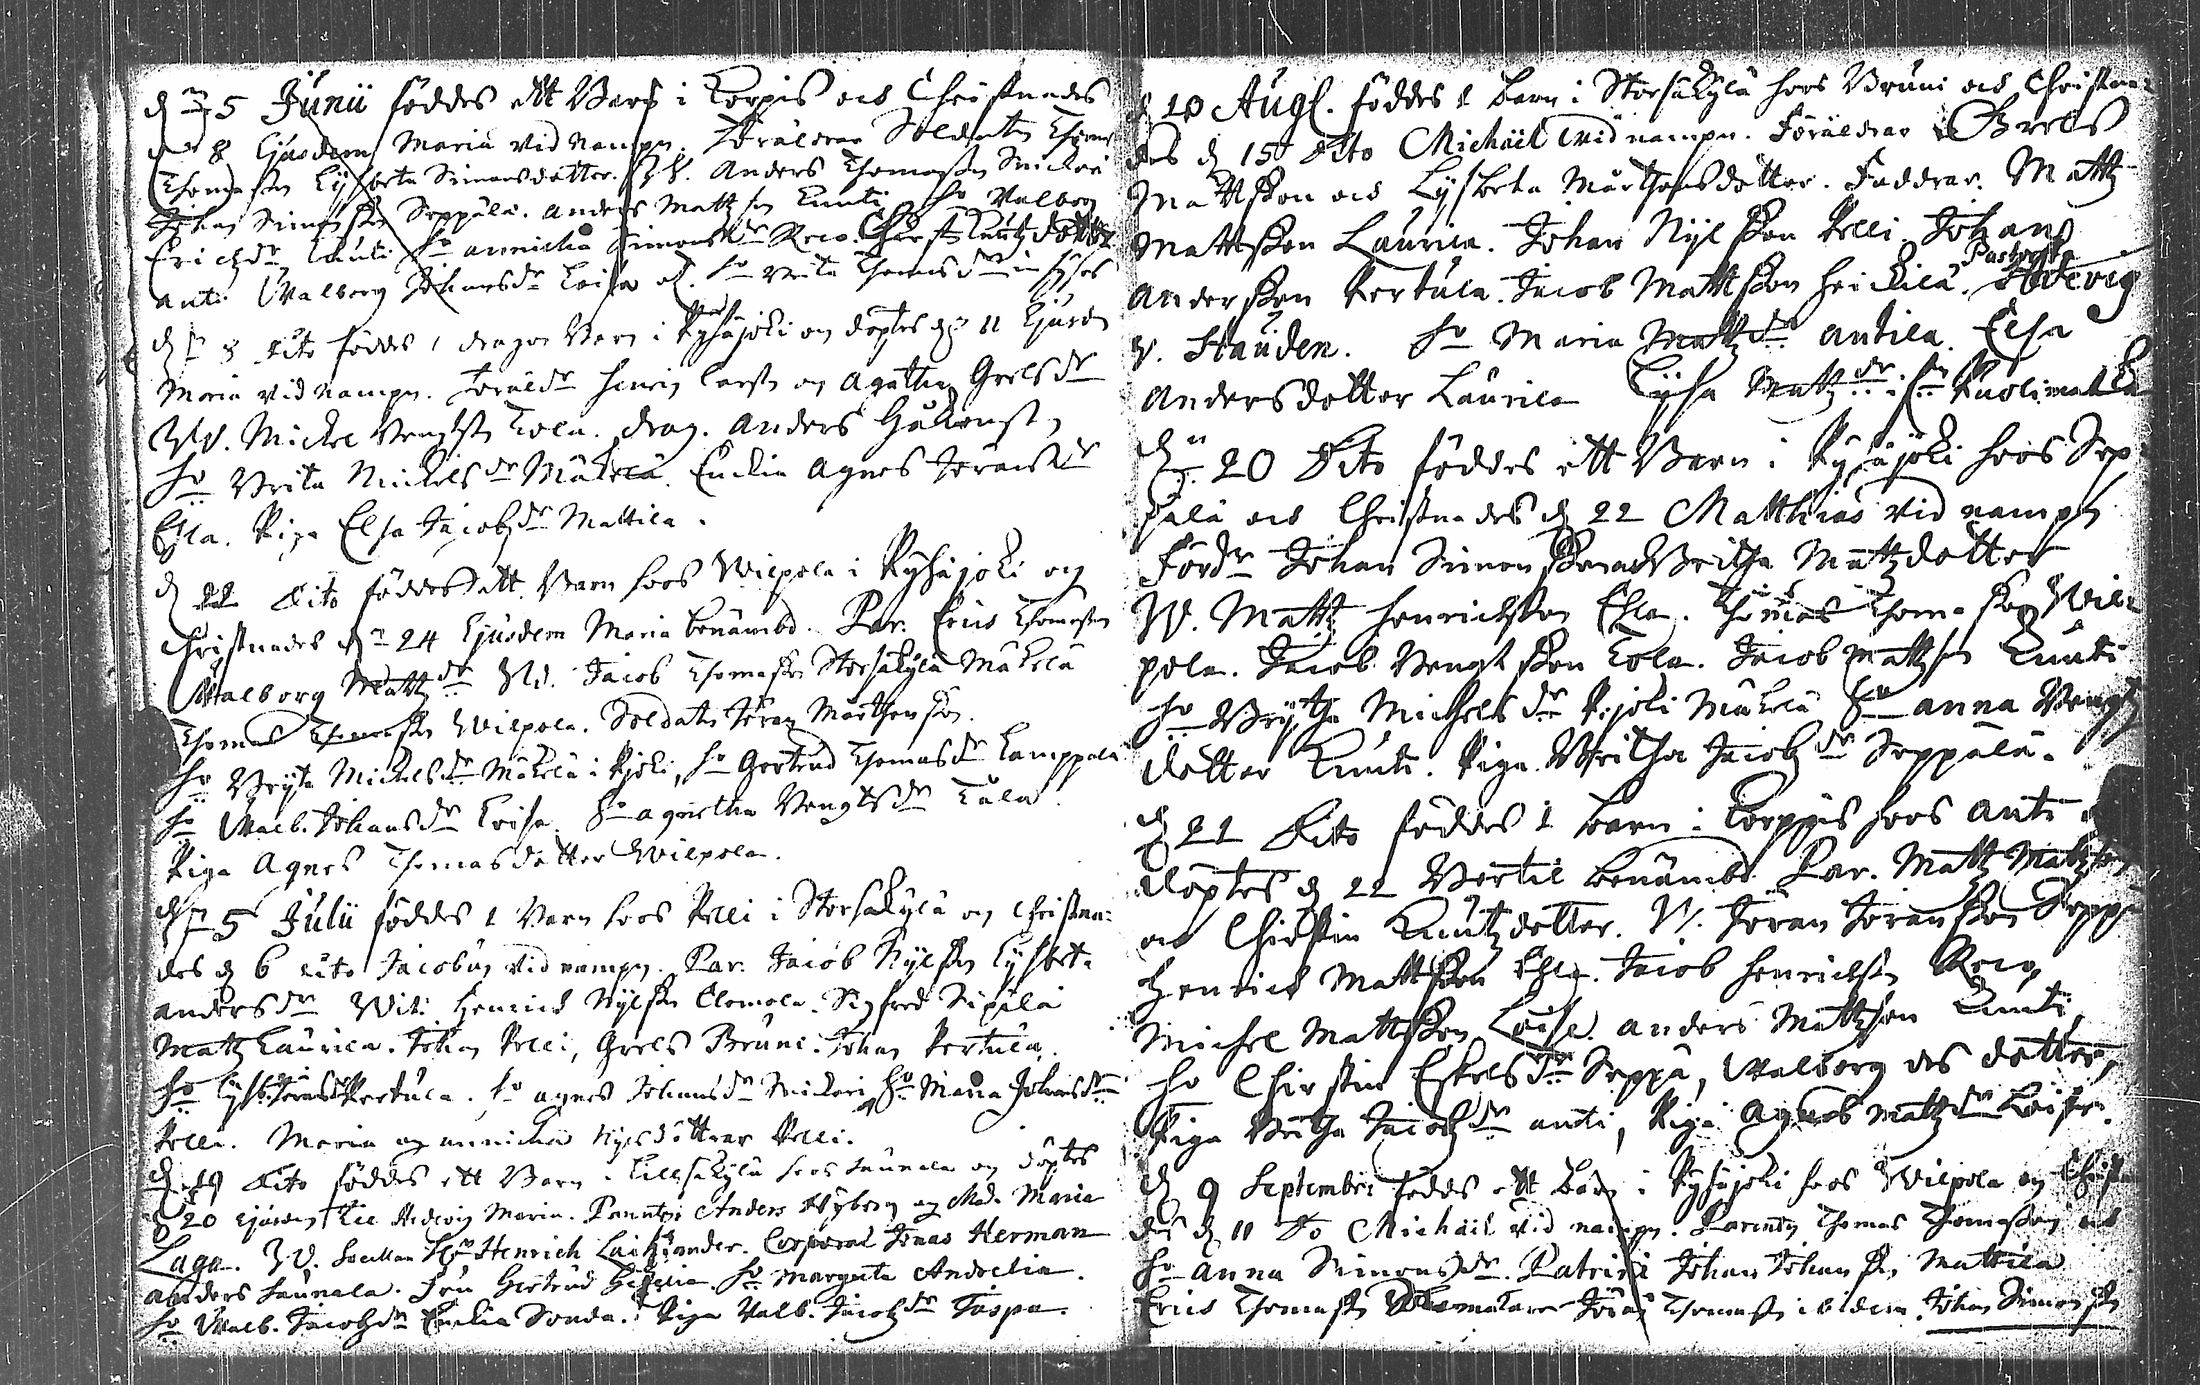 d. 5 Junii föddes ett Barn i Korpis och Christnades
d. 8 Ejusdem Maria vid nampn. Föräldrar Soldaten Thomas
Thomasson Lysbeta Simonsdotter. Anders Thomasson
Johan Simonsson Seppälä. Anders Mattsson Knuti h. Valborg
Erichdr Knuti h. annicka Simonsdr Reco. Knutzdotter
anti Walborg Johansdr Loisa h. Brita Thomasdr
d. 8 Dito föddes 1 dragon Barn i Pyhäjoki og döptes d. 11 Ejusd
Maria vid nampn. Föräldr Henrig Larss og Agatha Grelsdr
W. Mickel Bengtss Kola. drag. Anders Håkonss,
h. Brita Mickelsdr Mäkelä. Enckia Agnes Jöransdr
Ehla. Piga Elsa Jacobzdr Mattila.
d. 22 Dito föddes ett Barn hoos Wilpola i Pyhäjoki og
Christnades d. 24 Ejusdem Maria benämbd. Par. Erics Thomasson
Walborg Mattzdr W. Jacob Thomasson Storsäkylä Mäkelä
Thomas Thomasson Wilpola. Soldaten Jöran Mårthensson.
h. Bryta Mickelsdr Mäkelä i Pjoki, h. Gertrud Thomasdr Lamppala
h. Walb. Johansdr Loisa. h. agnetha Bengtsdr Kola.
Piga Agnes Thomasdotter Wilpola.
d. 5 Julii föddes 1 Barn hoos Pelli i Storsäkylä og Christna-
des d. 6 dito Jacobus vid nampn. Par. Jacob Nylsson Lysbeta
andersdr Wit: Henrick Nylsson Elomola. Sigfred Sipilä
Mattz Laurila. Johan Pelli, Grels Bruni. Johan Pertula,
h. Lysb. Pertula. h. agnes Johansdr h. Maria Johansdr
Pelli. Maria og annicka Nylsdöttrar Pelli.
d. 19 Dito föddes ett Barn i Lillsäkylä hoos Launala og döptes
d. 20 Ejusdem Hedevig Maria. Parentes Anders Nyberg og Mad. Maria
Laga. W. Henrich Laihiander. Corporal Jonas Herman
anders Launala. Fru Gertrud h. Margreta Andrelia.
h. Walb. Jacobzdr Enckia Sonda. Piga Valb. Jacobzdr Taspa.
d. 10 Aug. föddes 1 barn i Storsäkylä hoos Bruni och Christna-
des d. 15 Dito Michäel vid nampn. Föräldrar Grels
Mattsson och Lysbeta Mårthensdotter. Faddrar. Mattz
Mattsson Laurila. Johan Nylsson Pelli. Johan
Andersson Pertula. Jacob Mattsson Heickilä. Hedevig
v. Stauden. h. Maria Mattzdr Antila. Elsa
Andersdotter Laurila Lysa Mattzdr
d. 20 Dito föddes ett Barn i Pyhäjoki hoos Sep-
pälä och Christnades d. 22 Matthias vid nampn
Föräldr Johan Simonsson och Britha Mattzdotter
W. Mattz Henrichsson Ehla. Thomas Thomasson Wil-
pola. Jacob Bengtsson Kola. Jacob Mattsson Knuti
h. Brytha Michelsdr Pjoki Mäkelä h. anna Bengtz
dotter Knuti. Piga Britha Jacobzdr Seppälä.
d. 21 Dito föddes 1 barn i Korppis hoos Anti
döptes d. 22 Bertil benämbd. Par. Mattz Mattzson
och Christin Knutzdotter. W. Jöran Jöransson Seppä
Henrick Mattsson Ehla. Jacob Henrichsson Reco,
Michel Mattsson Loisa. Anders Mattsson Knuti,
h. Christin Eskelsdr Seppä, Walborg des dotter,
Piga Britha Jacobzdr anti, Piga Agnes Mattzdr Loisa.
d. 9 September föddes ett barn i Pyhäjoki hoos Wilpola og Christna
des d. 11 Do Michäel vid nampn. Parentes Thomas Thomasson och
h. Anna Simonsdr. Patrini Johan Johansson Mattila
Erics Thomasson Jöran Thomasson ibidem. Johan Simonsson